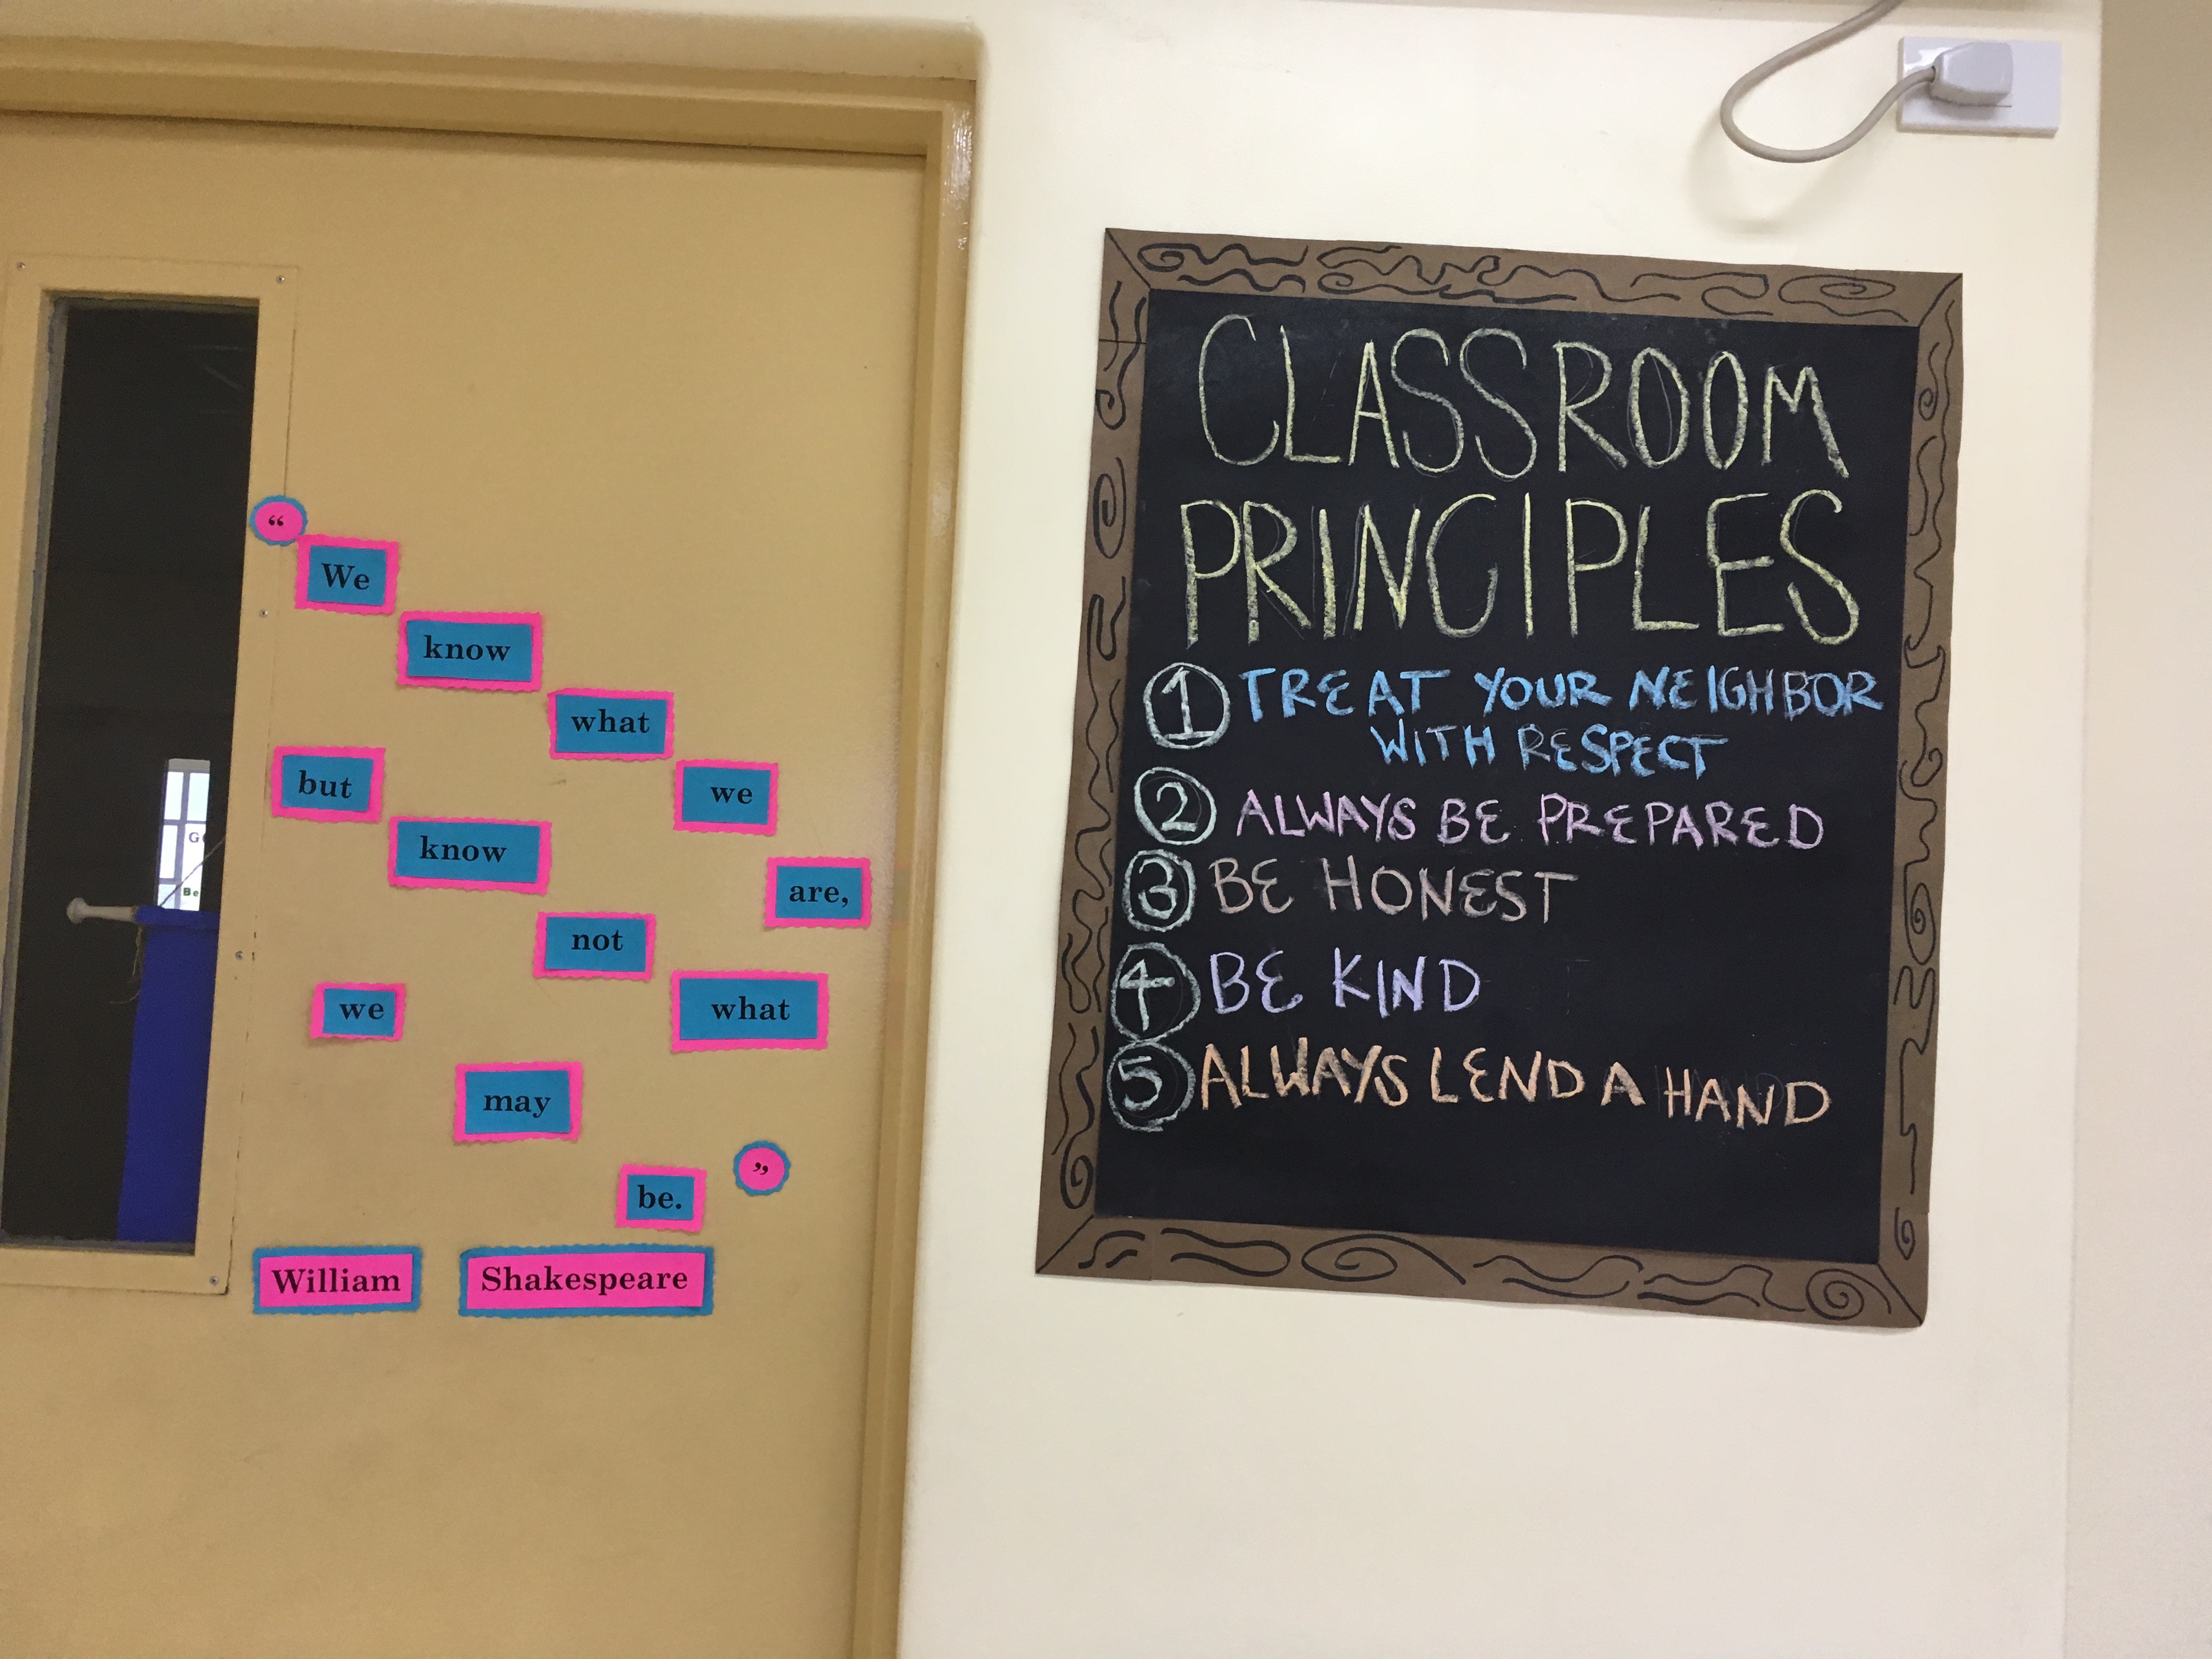 “ We know what we are,
but know not what
we may be. ”
William Shakespeare
CLASSROOM
PRINCIPLES
1 TREAT YOUR NEIGHBOR
WITH RESPECT
2 ALWAYS BE PREPARED
3 BE HONEST
4 BE KIND
5 ALWAYS LEND A HAND